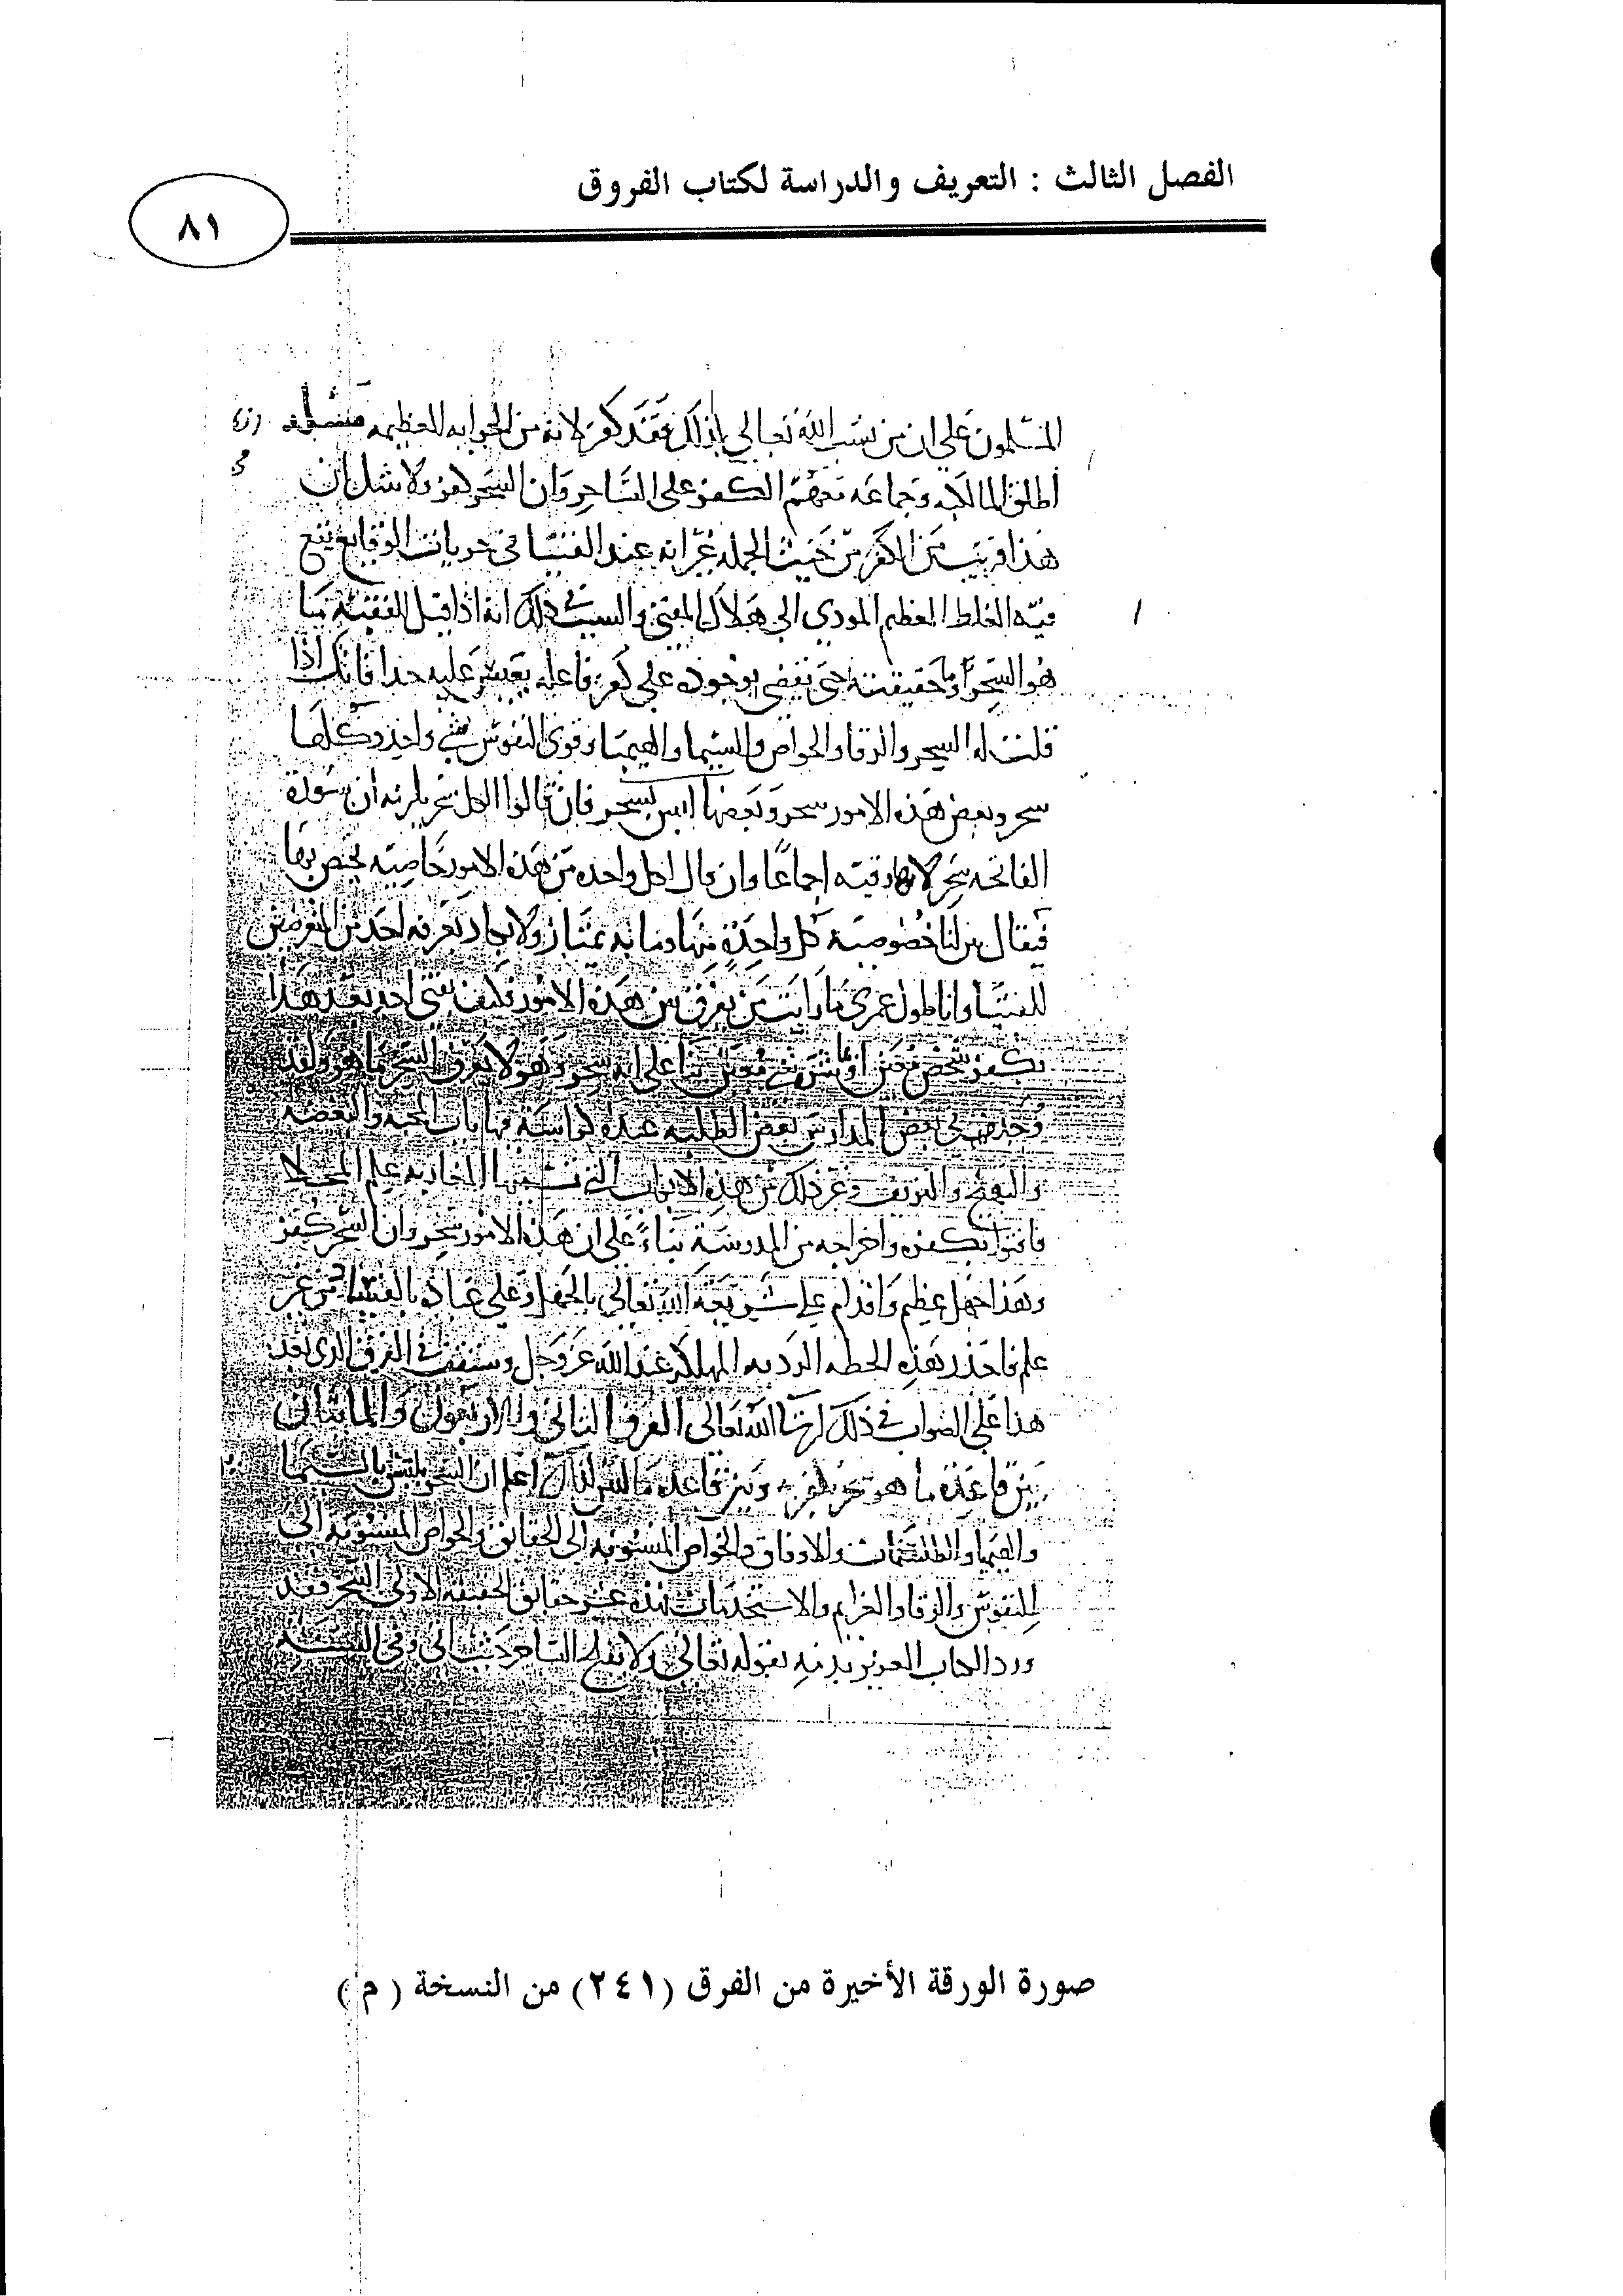 الفصل الثالث : التعريف والدراسة لكتاب الفروق
٨١
المسلمون على ان من نسب الله تعالى بذلك فقد كفر لانه من الجرايه العظيمه
اطلق المالكيه وجماعه معهم الكفر على الساحر وان السحر كفر ولا شك ان
هذا قريب من الكفر من حيث الجمله غير انه عند الفتيا في جزيات الوقايع يقع
فيه الغلط العظيم المودي الى هلاك المفتي والسبب في ذلك انه اذا قيل للفقيه ما
هو السحر وما حقيقته حتى يقضي بوجوده على كفر فاعله يعسر عليه جدا فانك اذا
قلت له السحر والرقا والخواص والسيميا والهيميا وقوى النفوس شي واحد وكلها
سحر وبعض هذه الامور سحر وبعضها ليس بسحر فان قالوا الكل سحر يلزمه ان سورة
الفاتحه سحر لانها رقيه اجماعا وان قال لكل واحده من هذه الامور خاصيه يختص بها
فيقال بين لنا خصوصية كل واحدة منها وما به تمتاز ولا يكاد يعرفه احد من المتعرضين
للفتيا وانا طول عمري ما رايت من يفرق بين هذه الامور فكيف يفتي احد بعد هذا
بكفر شخص معين او بمباشرة شي معين بنا على انه سحر وهو لا يعرف السحر ما هو ولقد
وجد في بعض المدارس بعض الطلبه عنده كراسة فيها باب المحبه والبغضه
والتهييج والنزيف وغير ذلك من هذه الابواب التي تسميها المغاربه علم المخلاه
فافتوا بكفره واخراجه من المدرسة بناء على ان هذه الامور سحر وان السحر كفر
وهذا جهل عظيم واقدام على شريعة الله تعالى بالجهل وعلى عباده بالفتيا من غير
علم فاحذر هذه الخطه الرديه المهلكه عند الله عز وجل وستقف في الفرق الذي بعد
هذا على الصواب في ذلك ان شا الله تعالى الفرق الثاني والاربعون والمايتان
بين قاعدة ما هو سحر يكفر به وبين قاعدة ما ليس كذلك اعلم ان السحر يلتبس بالسيميا
والهيميا والطلسمات والاوفاق والخواص المنسوبه الى الحقايق والخواص المنسوبه الى
النفوس والرقا والعزايم والاستخدامات فهذه عشر حقايق الحقيقه الاولى السحر وقد
ورد الكتاب العزيز بذمه بقوله تعالى ولا يفلح الساحر حيث اتى وفي السنة
صورة الورقة الأخيرة من الفرق (٢٤١) من النسخة ( م )